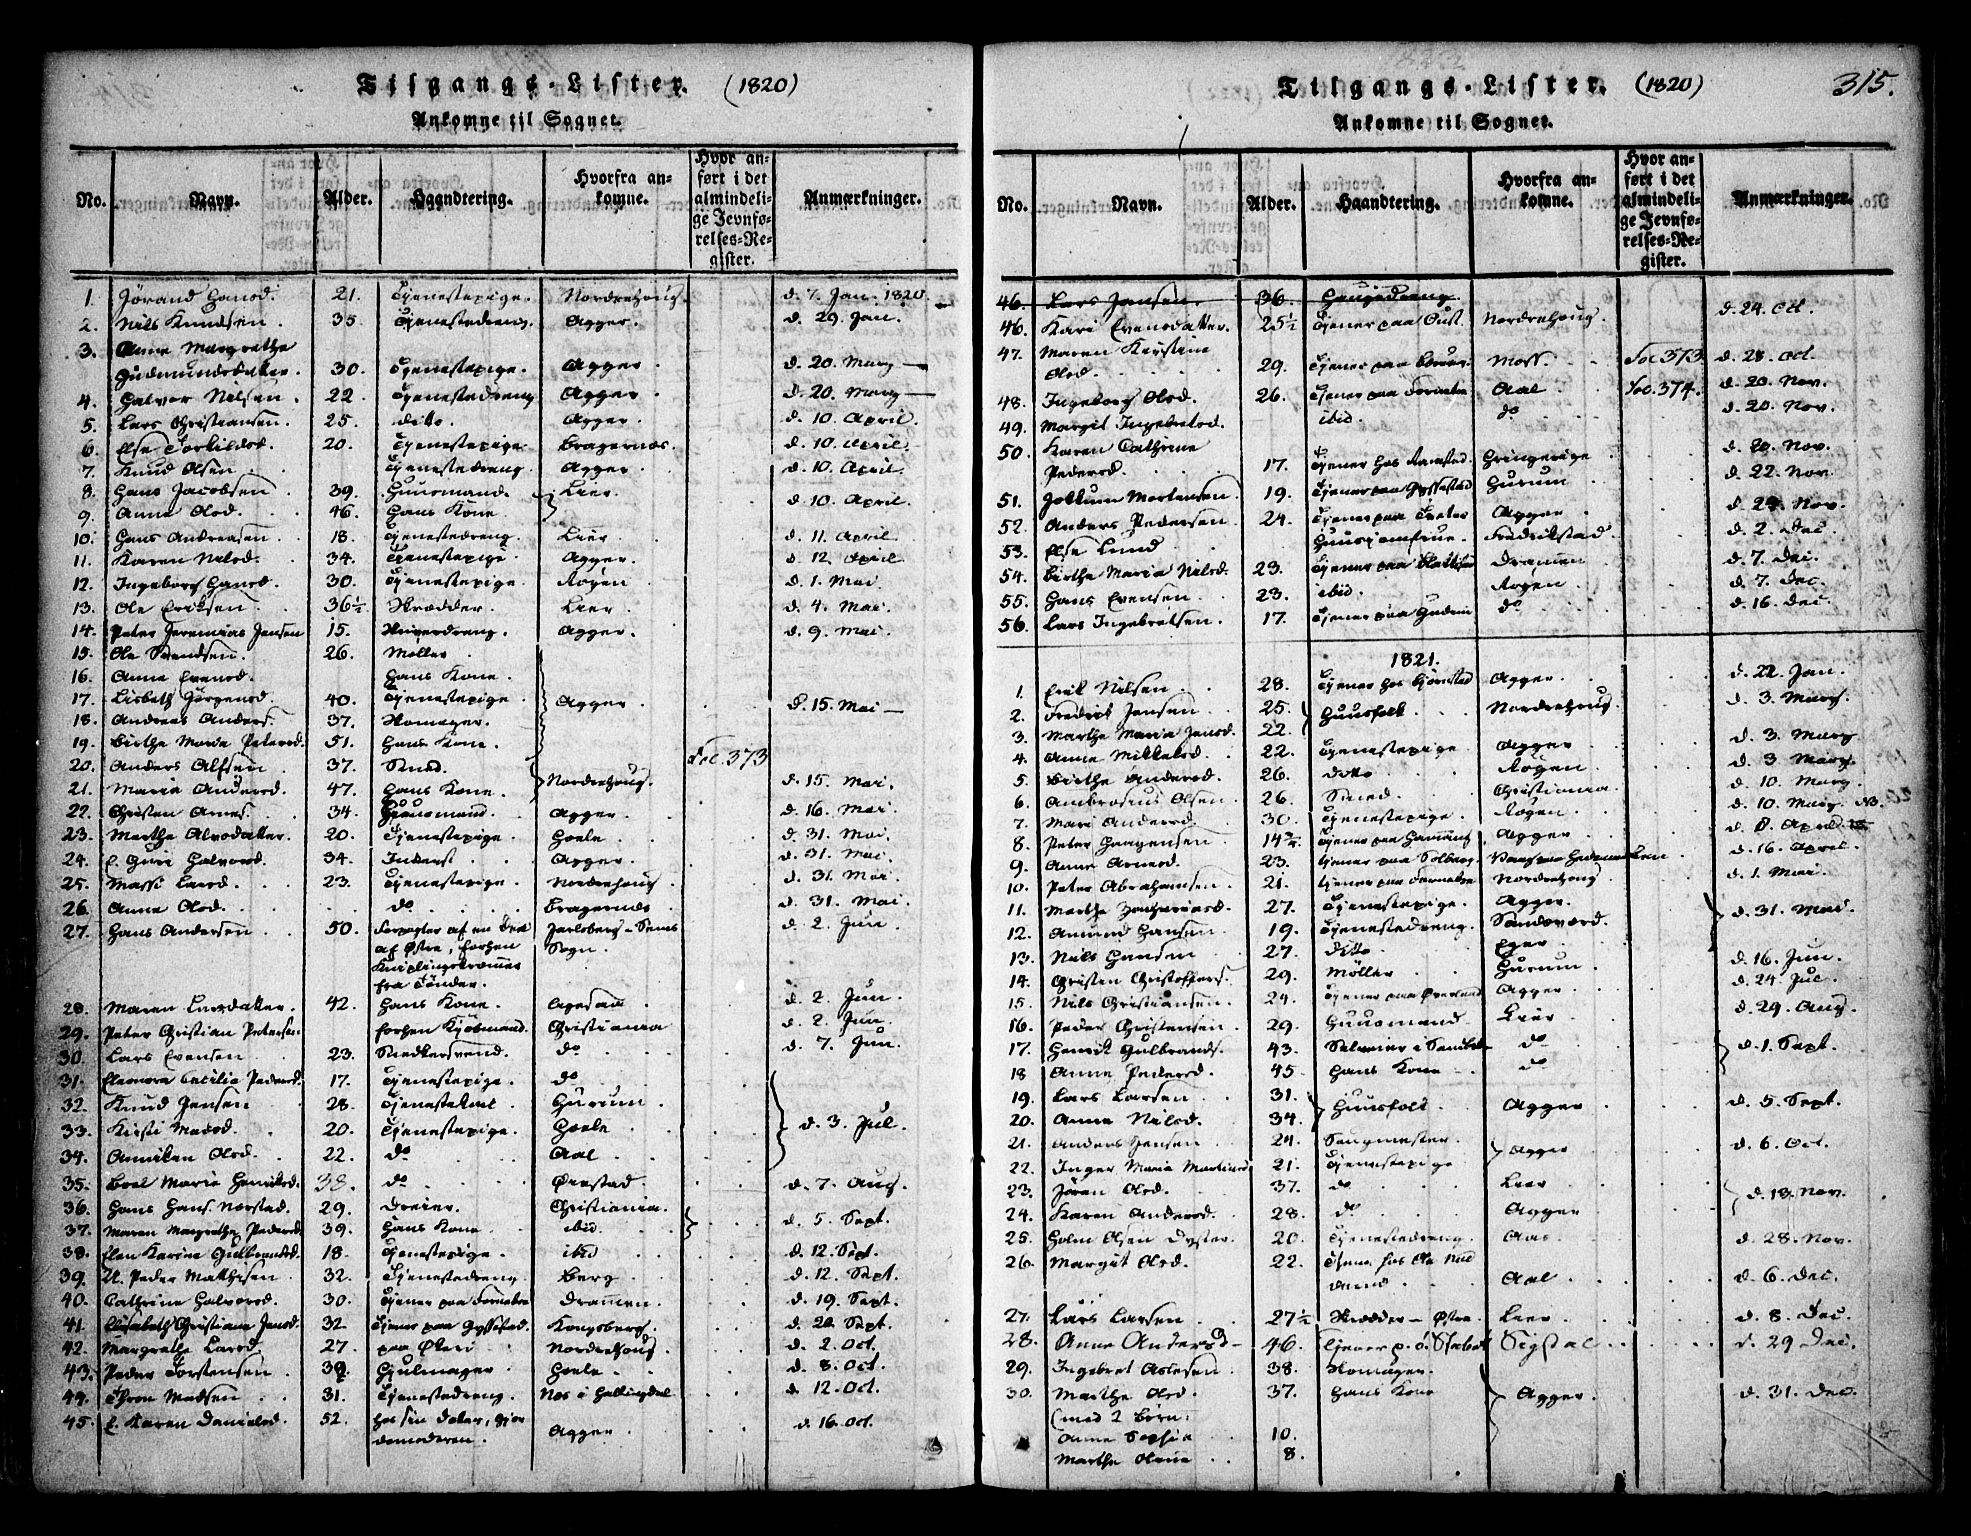 Tilgangs-Lister. (1820)
Ankomne til Sognet.
No. Navn. Alder. Haandtering. Hvorfra ankomne. Hvor anført i det almindelige Jevnførelses-Register. Anmærkninger.
1. Jörand Hansd. 21. Tjenestepige. Nordrehoug. d. 7. Jan. 1820.
2. Nils Knudsen. 35. Tjenestedreng. Agger. d. 29. Jan.
3. Anne Margrethe
Gudmundsdatter. 30. Tjenestepige. Agger. d. 20. Marg
4. Halvor Nilsen. 22. Tjenestedreng Agger. d. 20. Marg
5. Lars Christiansen. 25. ditto. Agger. d. 10. April.
6. Else Torkildsd. 20. Tjenestepige. Bragernæs. d. 10. April.
7. Knud Olsen. Tjenestedreng. Agger. d. 10. April.
8. Hans Jacobsen. 39. Huusmand. Lier. d. 10. April.
9. Anne Olsd. 46. Hans Kone.
10. Hans Andreasen. 18. Tjenestedreng. Lier. d. 11. April.
11. Karen Nilsd. 34. Tjenestepige. Agger. d. 12. April.
12. Ingeborg Hansd. 30. Tjenestepige. Røgen. d. 1. Mai.
13. Ole Eriksen. 36½ Skrædder. Lier. d. 4. Mai.
14. Peter Jeremias Jensen 15. Agger. d. 9. Mai.
15. Ole Svendsen. 26. Møller.
16. Anne Evensd. Hans Kone.
17. Lisbeth Jörgensd. 40. Tjenestepige. Agger. d. 15. Mai
18. Andreas Anders. 37. Skomager.
19. Birthe Marie Petersd. 51. Hans Kone.
20. Anders Alfsen. 37. Smed. Nordrehoug. Soc. 373 d. 15. Mai.
21. Maria Andersd. 47. Hans Kone.
22. Christen Arnes. 34. Huusmand. Agger. d. 16. Mai.
23. Marthe Alvsdatter. 20. Tjenestepige. Hoele. d. 31. Mai.
24. E. Guri Halvorsd. 34. Inderst. Agger. d. 31. Mai.
25. Massi Larsd. 23. Tjenestepige. Nordrehoug. d. 31. Mai.
26. Anne Olsd. do Bragernæs. d. 31. Mai.
27. Hans Andersen. 50. Forpagter af en Deel Jarlsberg - Sems d. 2. Jun.
af Østre, forhen Sogn.
Kniplingskræmmer
fra Tønder.
28. Maren Larsdatter. 42. Hans Kone. d. 2. Jun.
29. Peter Christian Petersen. forhen Kjöbmand. Christiania d. 2. Jun.
30. Lars Evensen. 23. Snedkersvend. do d. 7. Jun.
31. Eleonora Cecilia Pedersd. 17. Tjenestepige. do
32. Knud Jensen 28. Tjenestekarl. Hurum.
33. Kirsti Madsd. 20. Tjenestepige. Hoele. d. 3. Jul.
34. Anniken Olsd. 22. do Aal.
35. Boel Marie Henriksd. 38. do d. 7. Aug.
36. Hans Hans. Norstad. 29. Dreier. Christiania. d. 5. Sept.
37. Maren Margrethe Pedersd. 39. Hans Kone. ibid.
38. Elen Karine Gulbrandsd. 18. Tjenestepige. ibid d. 12. Sept.
39. Peder Matthisen. 32. Tjenestedreng. Berg. d. 12. Sept.
40. Cathrine Halvorsd. 30. Tjener paa Fornebo Drammen. d. 19. Sept.
41. Elisabeth Christiane Jensd. 32. Tjener paa Gyssestad. Kongsberg. d. 20. Sept.
42. Margrethe Larsd. 27. paa Øveri Nordrehoug. d. 2. Oct.
43. Peder Torstensen. 39. Hjulmager. Hoele. d. 8. Oct.
44. Thron Madsen. 31. Tjenestedreng. Næs i Hallingdal d. 12. Oct.
45. E. Karen Danielsd. 52. hos sin Dater, Gjor- Agger. d. 16. Oct.
demoderen.
Tilgangs-Lister. (1820) 315.
Ankomne til Sognet.
No. Navn. Alder. Haandtering. Hvorfra ankomne. Hvor anført i det almindelige Jevnførelses-Register. Anmærkninger.
46. Lars Jansen. 36. Gaugedreng.
46. Kari Evensdatter. 25½ Tjener paa Nordrehoug. d. 24. Oct.
47. Maren Kirstine
Olsd. 29. Tjener paa Moss. Soc. 373 d. 28. Oct.
48. Ingeborg Olsd. 26. Tjener paa Fornebo Aal. Soc. 374. d. 20. Nov.
49. Margit Ingebretsd. ibid. do d. 20. Nov.
50. Karen Cathrine
Pedersd. 17. Tjener hos Ramstad. Hringerige. d. 20. Nov.
51. Mortensen. 19. Tjener paa Gyssestad Hurum. d. 22. Nov.
52. Anders Pedersen. 24. Tjener paa Agger. d. 29. Nov.
53. Else Lund Huusjomfrue. Fredrikstad. d. 2. Dec.
54. Birthe Maria Nilsd. 23. Tjener paa Drammen. d. 7. Dec.
55. Hans Evensen. 23. ibid. Røgen. d. 7. Dec.
56. Lars Ingebretsen. 17. Tjener paa do d. 16. Dec.
1821.
1. Erik Nilsen. 28. Tjener hos Bjørnstad Agger. d. 22. Jan.
2. Fredrik Jensen. 25. Huusfolk. Nordrehoug. d. 3. Marg.
3. Marthe Maria Jensd. 22.
4. Anne Mikkelsd. 22. Tjenestepige. Agger. d. 3. Marg
5. Birthe Andersd. 26. ditto. Røgen. d. 3. Marg.
6. Ambrosius Olsen. 26. Smed. Christiania. d. 10. Marg.
7. Mari Andersd. 30. Tjenestepige. Røgen. d. 10. Marg. NB.
8. Peter Haagensen. 14¾ Tjener paa Agger. d. 8. April
9. Anne Arnesd. 23. Tjener paa Solberg. d. 16. April.
10. Peter Abrahamsen. 21. Tjener paa Fornebo Nordrehoug. d. 1. Mai.
11. Marthe Zachariasd. 27. Tjenestepige. Agger. d. 31. Mai.
12. Amund Hansen. 19. Tjenestedreng. Sandsværd.
13. Nils Hansen. 27. ditto. Eger. d. 16. Jun.
14. Christen Christoffers. 29. Möller. Hurum. d. 24. Jul.
15. Nils Christiansen. 24. Tjener paa Øverland Agger. d. 29. Aug.
16. Peder Christensen. 29. Huusmand. Lier.
17. Henrik Gulbrands. 43. do d. 1. Sept.
18 Anne Pedersd. 45. Hans Kone do
19. Lars Larsen. 31. Huusfolk. Agger. d. 5. Sept.
20. Anne Nilsd. 34.
21. Anders Jensen. 24. Saugmester. Agger d. 6. Oct.
22. Inger Maria Martinsd 21. Tjenestepige
23. Jören Olsd. 37. do Lier. d. 18. Nov.
24. Karen Andersd. 28. do Agger
25. Holm Olsen Dyster. 20. Tjenestedreng. Aas. d. 28. Nov.
26. Margit Olsd. 22. Tjener hos Ole Aal. d. 6. Dec.
27. Lars Larsen. 27½ Skrædder - Østre Lier. d. 8. Dec.
28. Anne Andersd 46. tjener p. Sigdal d. 29 Dec.
29. Ingebret Aslesen 38. Skomager.
30. Marthe Olsd. 37. Hans Kone Agger. d. 31. Dec.
(med 2 Börn:
Anne Sophie 10.
Marthe Oline 8.